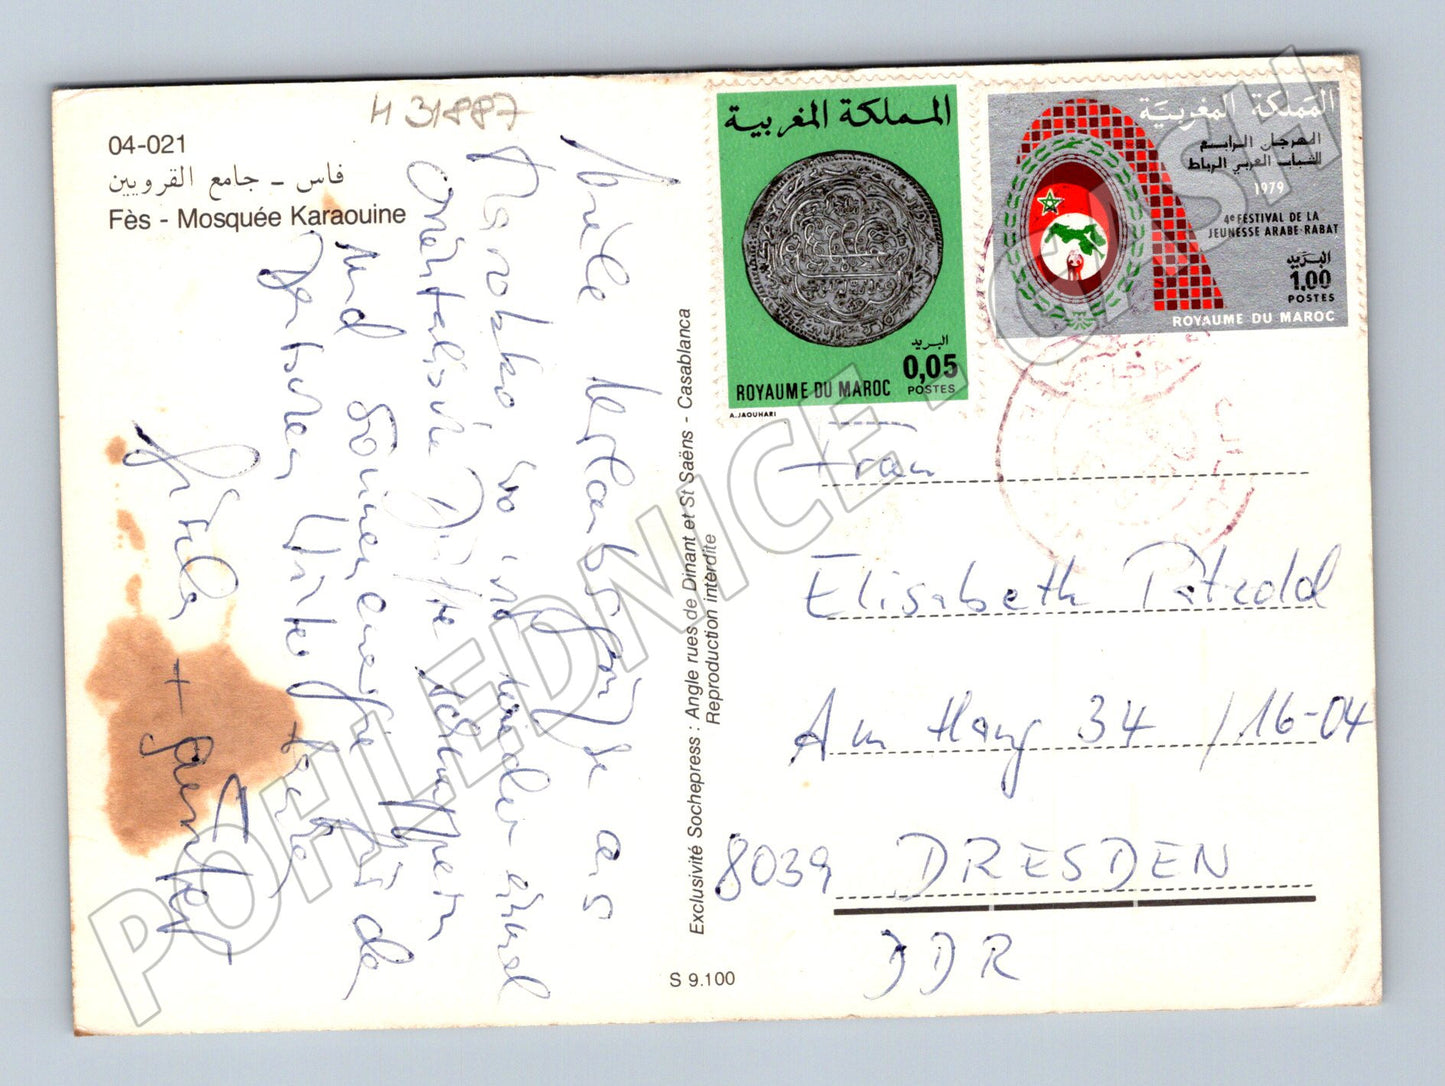 H 31887
04-021
فاس - جامع القرويين
Fès - Mosquée Karaouine
Viele Urlaubsgrüße aus
Marokko wo wir
orientalische Düfte schnuppern
und Sonnenenergie für
Winter
+ Günter
Exclusivité Sochepress : Angle rues de Dinant et St Saëns - Casablanca
Reproduction interdite
S 9.100
المملكة المغربية
البريد
0,05
POSTES
ROYAUME DU MAROC
A.JAOUHARI
المملكة المغربية
المهرجان الرابع
للشباب العربي الرباط
1979
4e FESTIVAL DE LA
JEUNESSE ARABE-RABAT
البريد
1,00
POSTES
ROYAUME DU MAROC
Frau
Elisabeth Pätzold
Am Hang 34 /16-04
8039 DRESDEN
DDR
POHLEDNICE.CASH